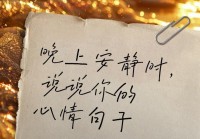 晚上安静时，
说说你的
心情句子